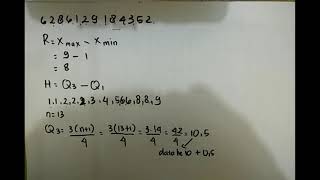 6 2 8 6 1 2 9 1 8 4 3 5 2
R = x max - x min
= 9 - 1
= 8
H = Q3 - Q1
1, 1, 2, 2, 2, 3, 4, 5, 6, 6, 8, 8, 9
n = 13
Q3 = 3(n+1)/4 = 3(13+1)/4 = 3.14/4 = 42/4 = 10,5
data ke 10 + 0,5